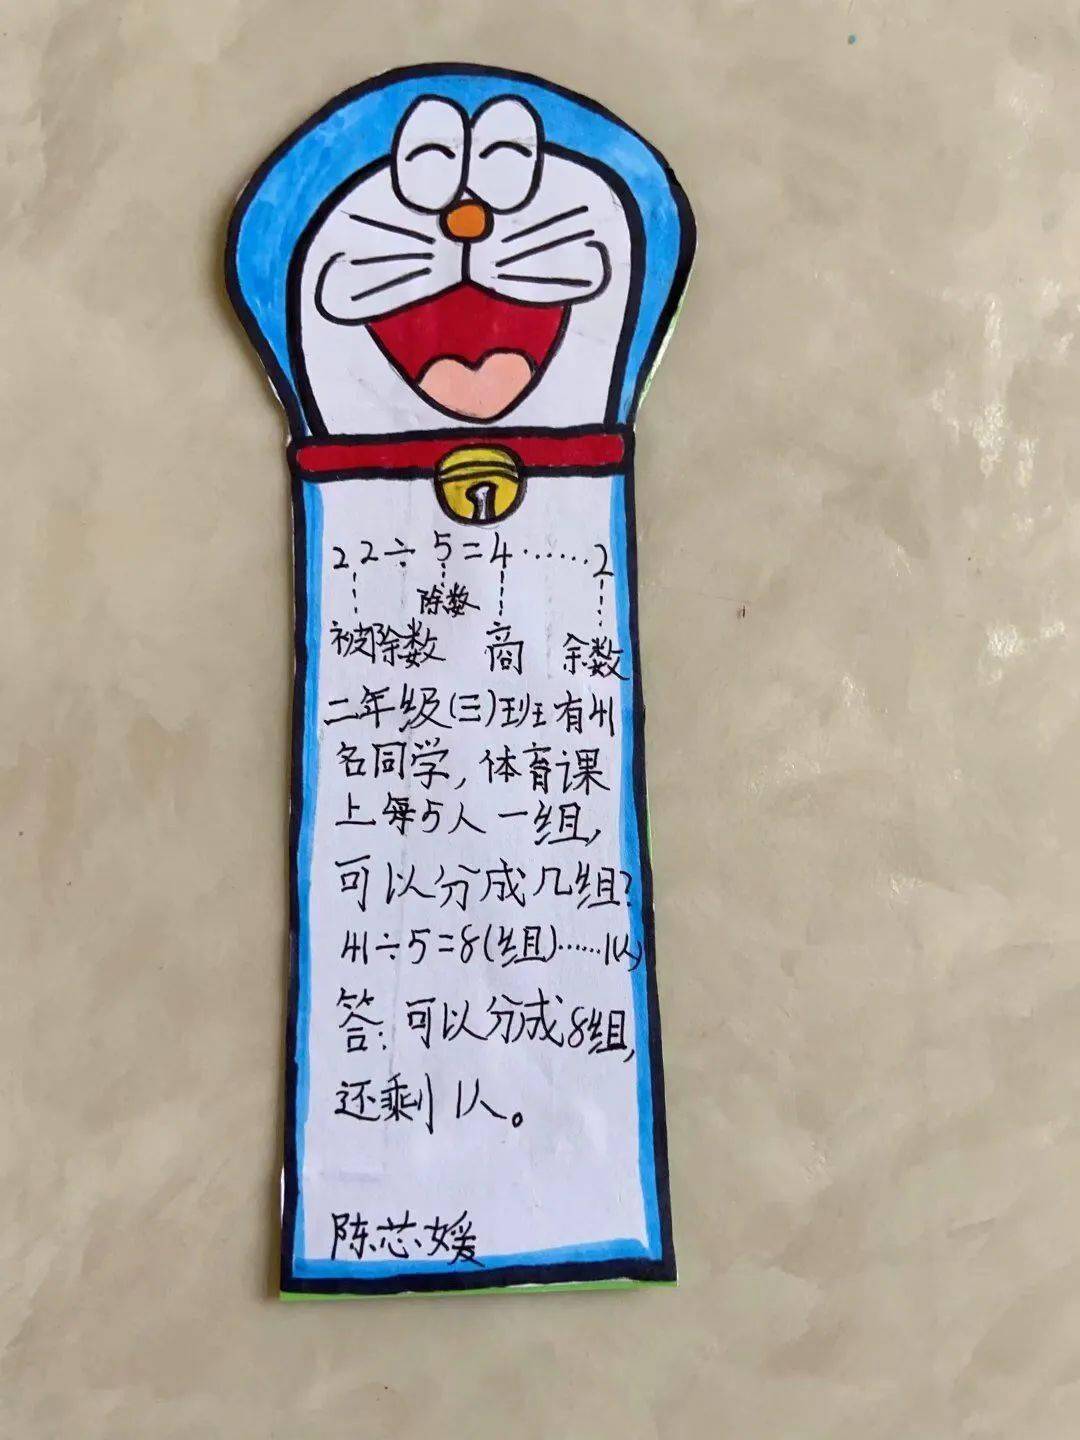 22÷5=4……2
除数
被除数 商 余数
二年级(三)班有41
名同学,体育课
上每5人一组,
可以分成几组?
41÷5=8(组)……1(人)
答:可以分成8组,
还剩1人。
陈芯媛